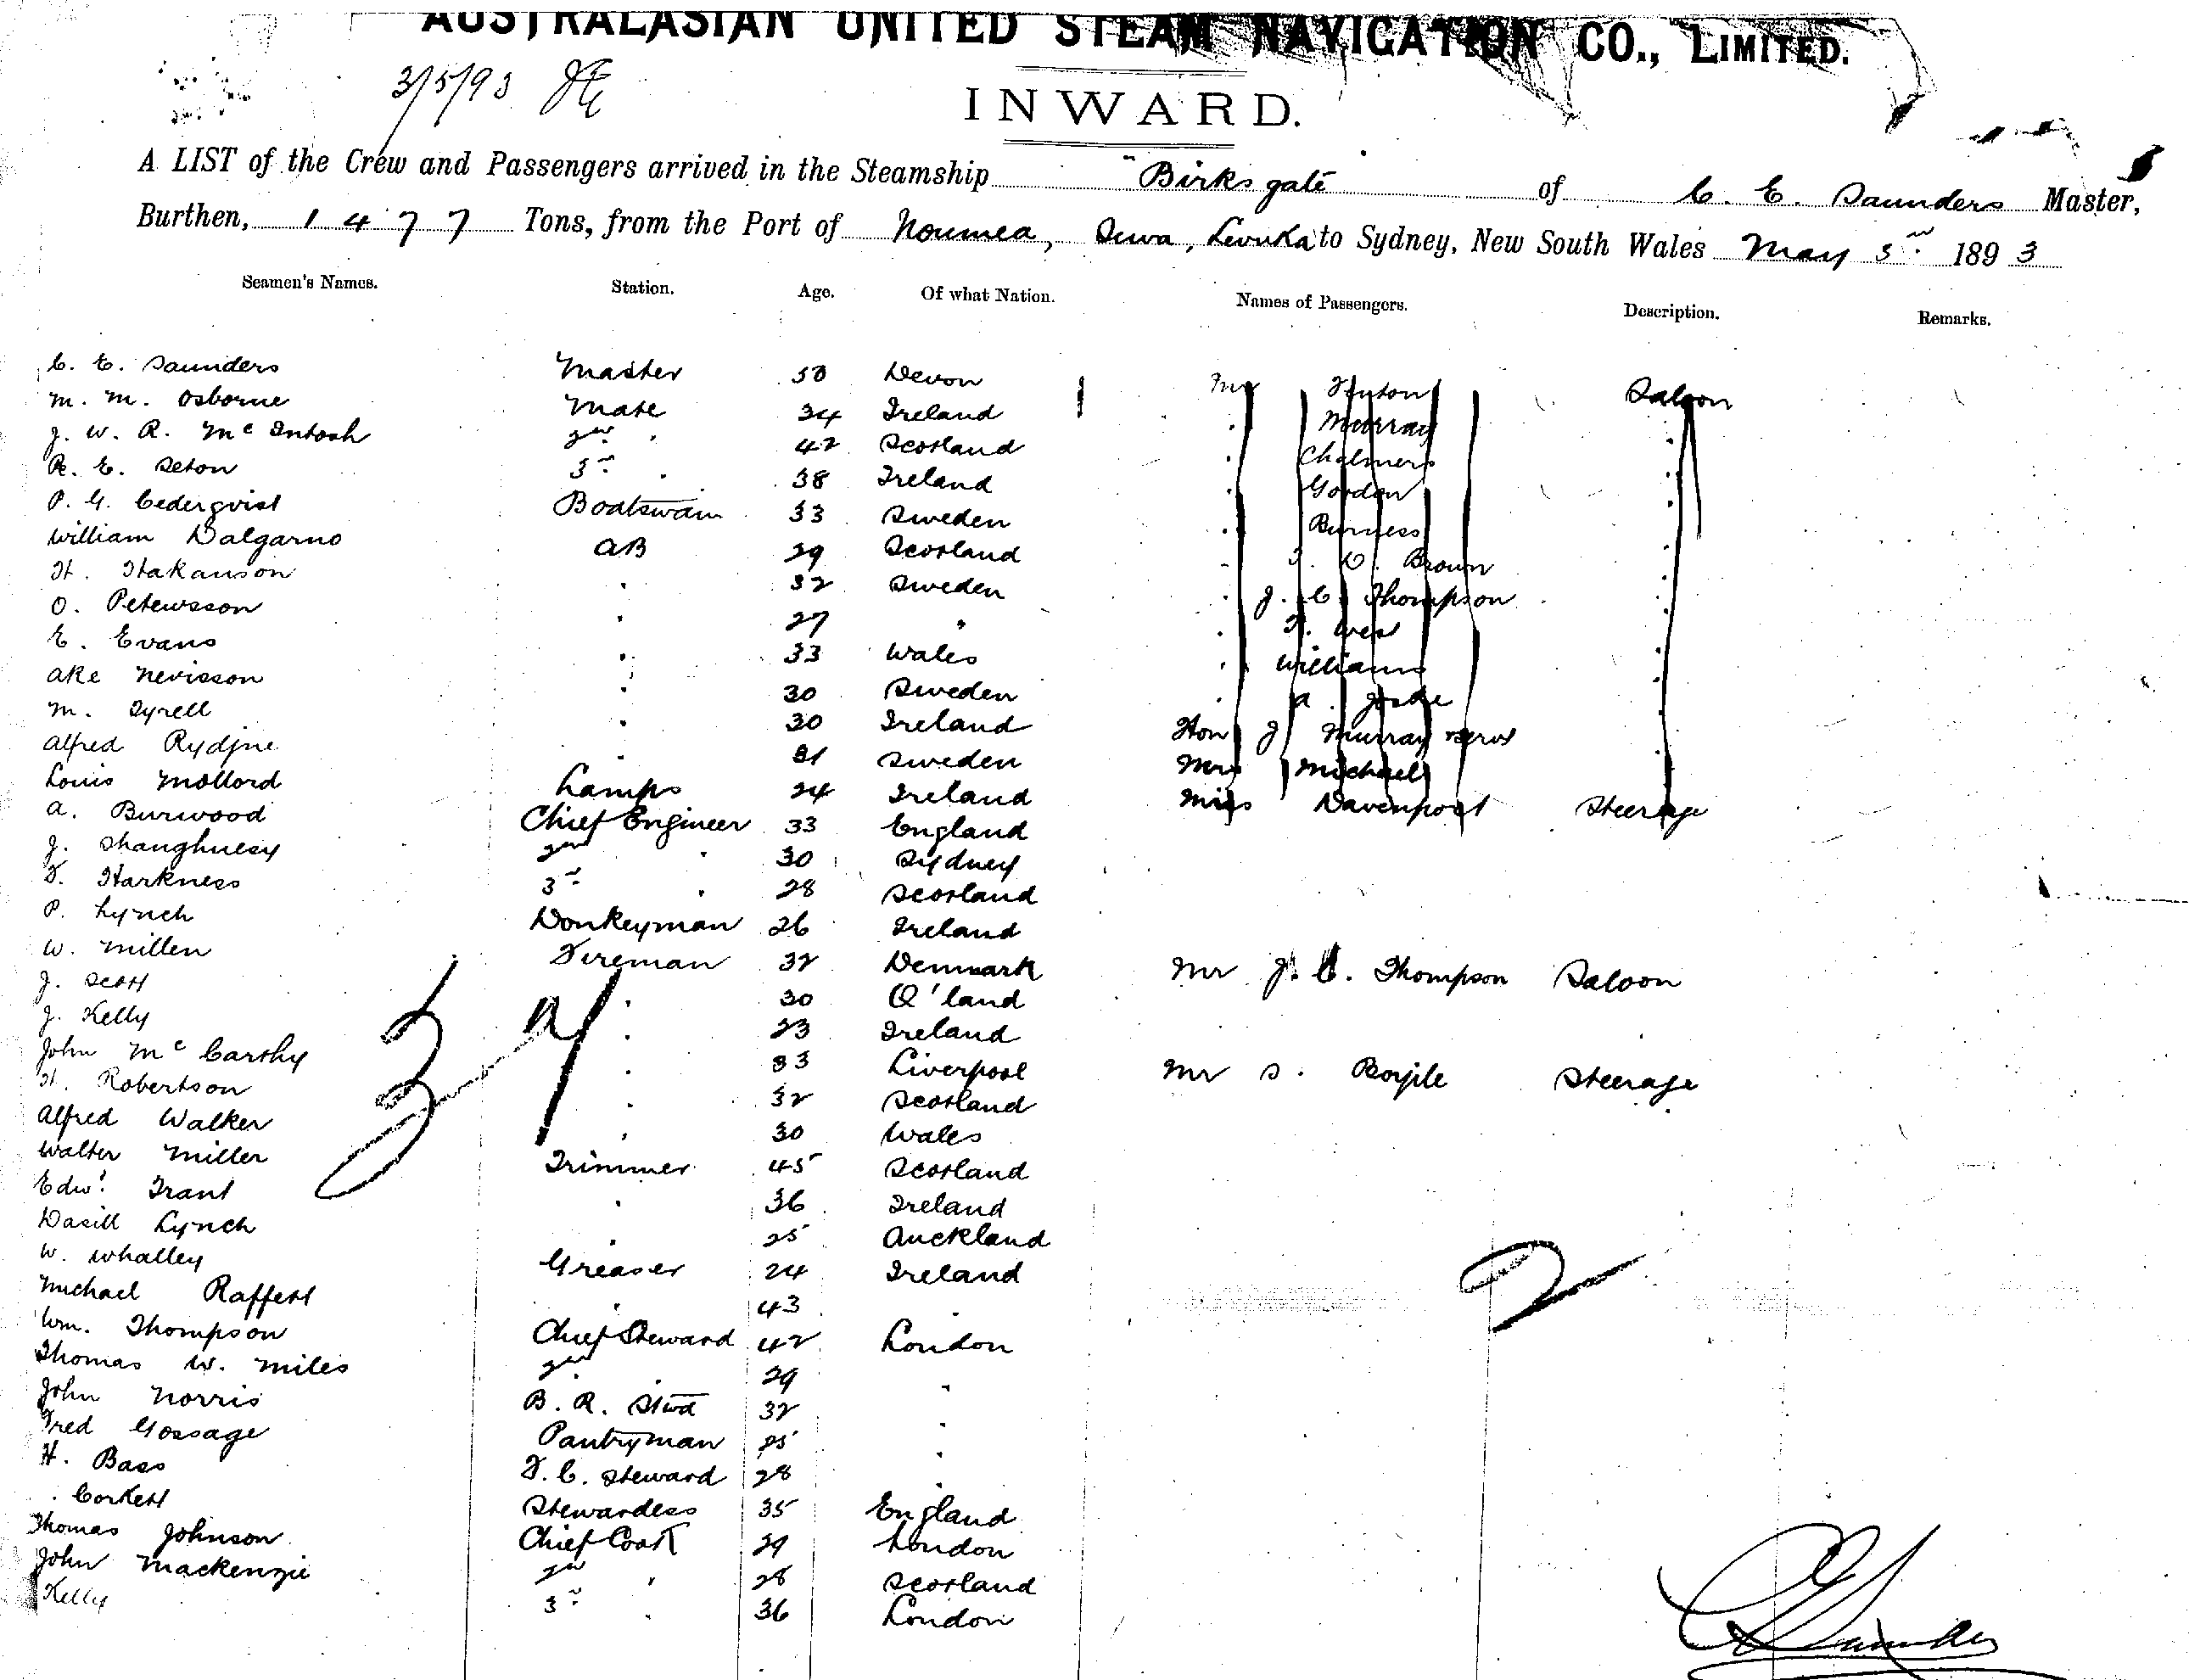 AUSTRALASIAN UNITED STEAM NAVIGATION CO., LIMITED.
3/5/93
INWARD.
A LIST of the Crew and Passengers arrived in the Steamship "Birksgate" of C. E. Saunders Master,
Burthen, 1477 Tons, from the Port of Noumea, Suva, Levuka to Sydney, New South Wales May 3rd 1893
Seamen's Names. Station. Age. Of what Nation. Names of Passengers. Description. Remarks.
C. E. Saunders Master 50 Devon Mr Saloon
M. M. Osborne Mate 34 Ireland " Murray "
J. W. R. McIntosh 2nd " 42 Scotland " Chalmers "
R. E. Seton 3rd " 38 Ireland " Gordon "
P. G. Cederqvist Boatswain 33 Sweden " Burness "
William Dalgarno AB 29 Scotland " Brown "
H. Hakanson " 32 Sweden " J. C. Thompson "
O. Petersson " 27 " "
E. Evans " 33 Wales " Williams "
Ake Nevisson " 30 Sweden " A. Joske "
M. Tyrell " 30 Ireland Hon J Murray "
Alfred " 31 Sweden Mrs Michael "
Louis Mollord Lamps 24 Ireland Miss Davenport Steerage
A. Burwood Chief Engineer 33 England
J. Shanghnesy 2nd " 30 Sydney
T. Harkness 3rd " 28 Scotland
P. Lynch Donkeyman 26 Ireland
W. Millen Fireman 32 Denmark Mr J. C. Thompson Saloon
J. Scott " 30 Q'land
J. Kelly " 23 Ireland
John McCarthy " 33 Liverpool Mr S. Boyle Steerage
H. Robertson " 32 Scotland
Alfred Walker " 30 Wales
Walter Miller Trimmer 45 Scotland
Edwd. Trant " 36 Ireland
Lynch " 25 Auckland
W. Whalley Greaser 24 Ireland
Michael Raffert " 43 "
Wm. Thompson Chief Steward 42 London
Thomas W. Miles 2nd " 29 "
John Norris B. R. Stwd 32 "
Fred Gossage Pantryman 25 "
H. Bass F. C. Steward 28 "
Corkett Stewardess 35 England
Thomas Johnson Chief Cook 29 London
John Mackenzie 2nd " 28 Scotland
Kelly 3rd " 36 London
39
2
C E Saunders